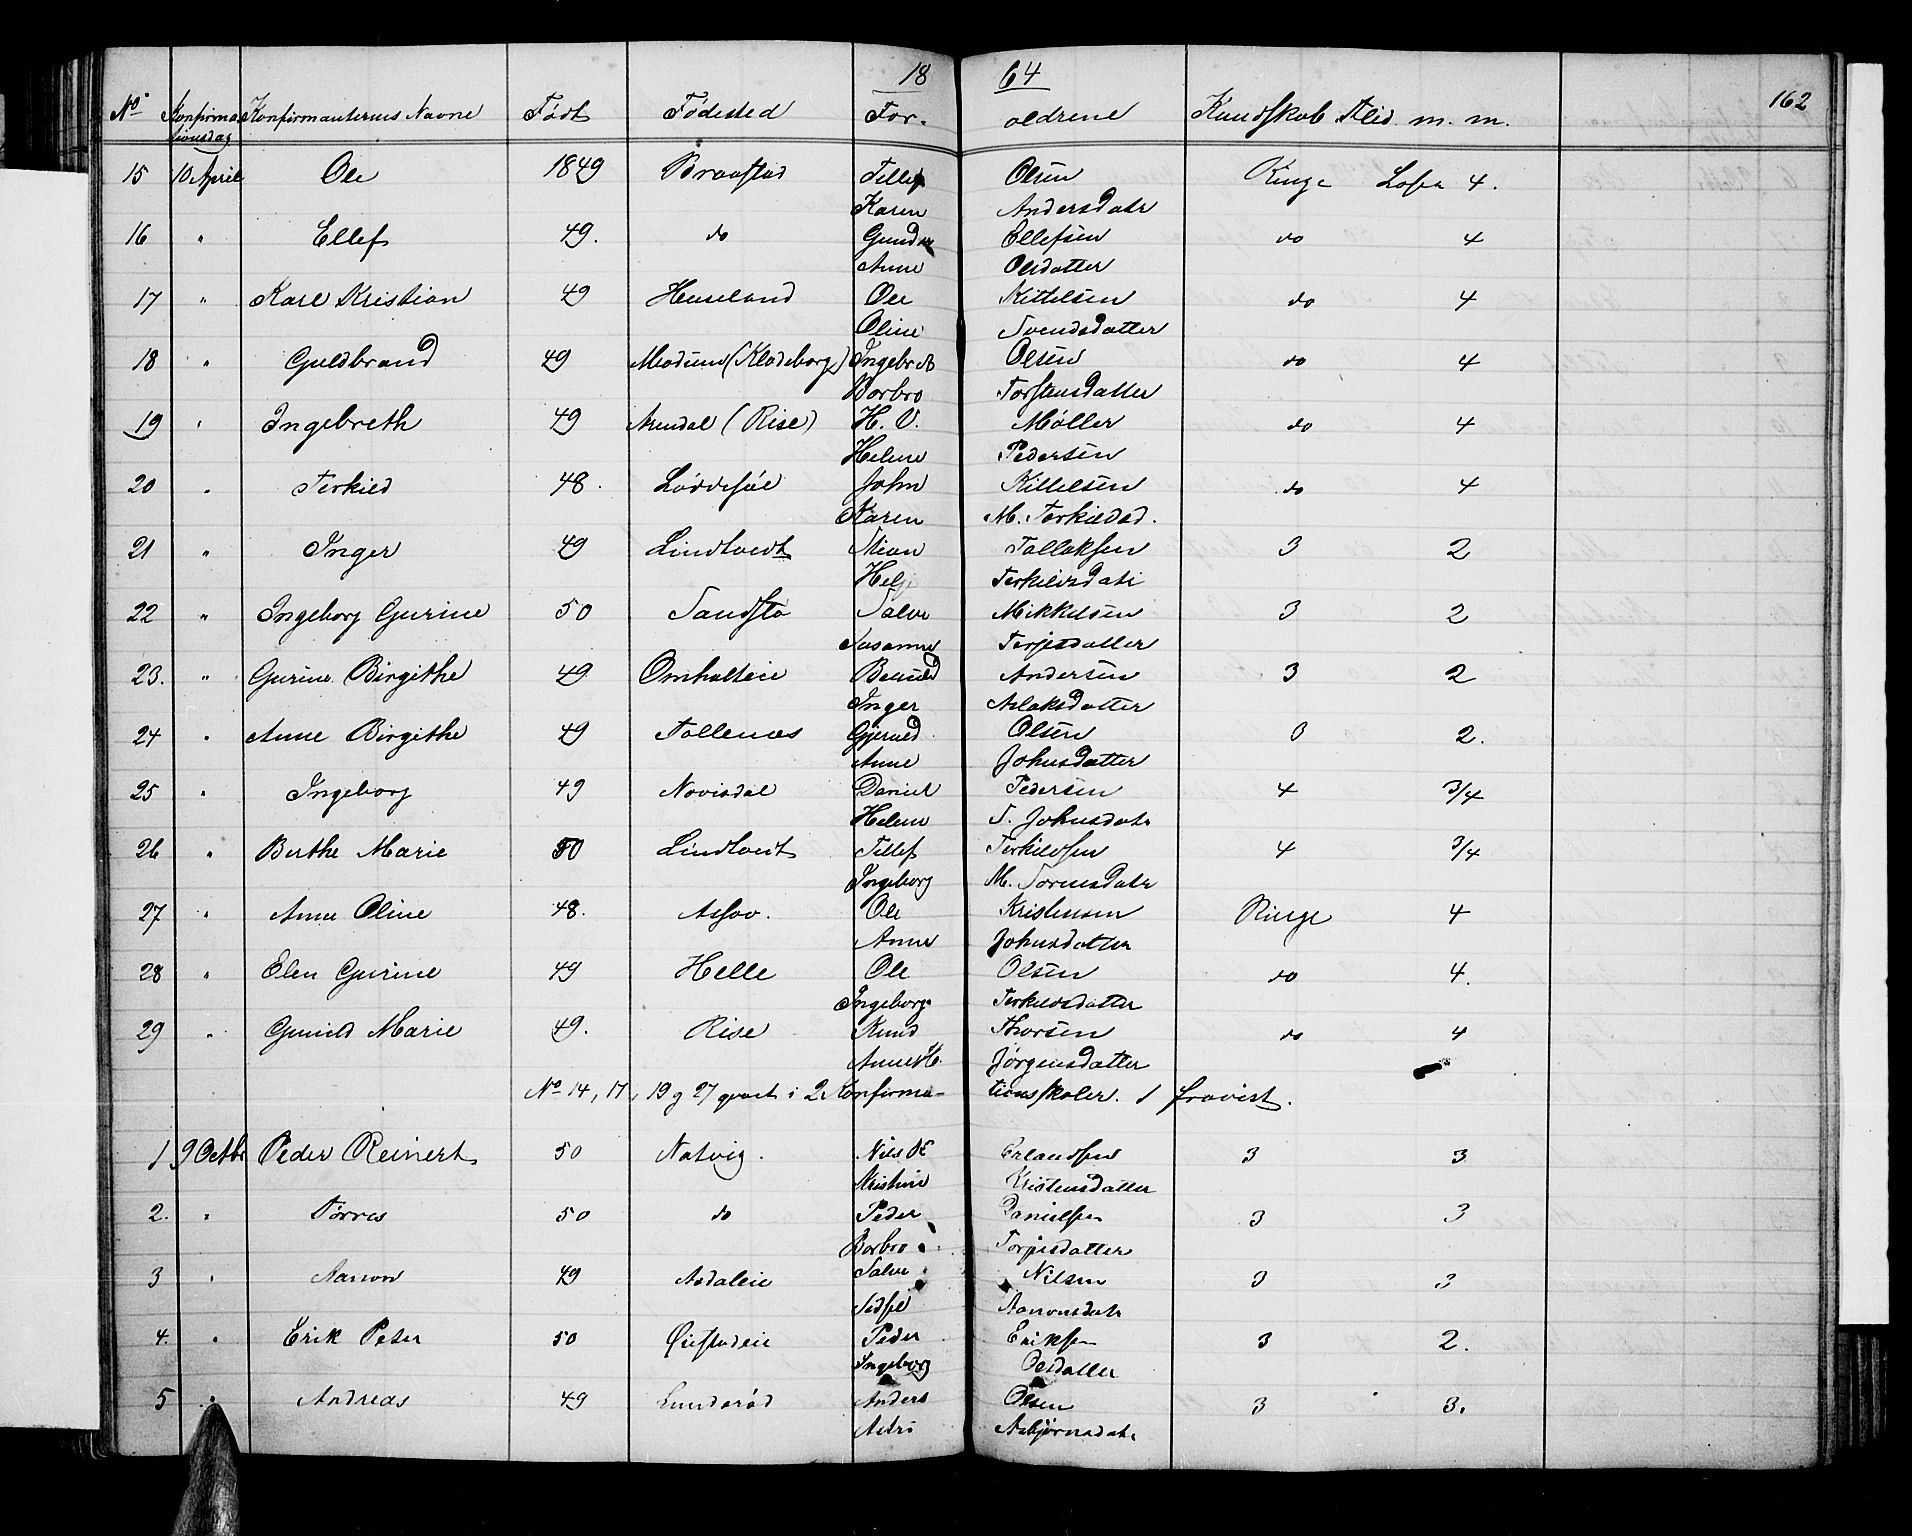 18 64
162
No. Konfirma Konfirmanternes Navne Født Fødested For- ældrene Kundskab Flid m. m.
tionsdag
15 10 April Ole 1849 Braastad Tellef Olsen Ringe 4.
Karen Andersdatr
16 " Ellef 49. do Gunder Ellefsen do 4
Anne Olsdatter
17 " Karl Kristian 49 Huseland Ole Kittelsen do 4
Oline Svendsdatter
18 " Guldbrand 49 Modum (Klodeborg) Ingebret Olsen do 4
Borbro Torstensdatter
19 " Ingebreth 49 Arendal (Rise) H. V. Møller do 4
Helene Pedersen
20 " Terkild 48. Løddesøl John Kittelsen do 4
Karen M. Terkildsd.
21 " Inger 49 Lindtveit Stian Tallaksen 3 2
Helje Terkildsdatr
22 " Ingeborg Gurine 50 Sandstø Salve Mikkelsen 3 2
Susanne Terjesdatter
23. " Gurine Birgithe 49 Omholteie Andersen 3 2
Inger Aslaksdatter
24 " Anne Birgithe 49 Tollenæs Gjeruld Olsen 3 2.
Anne Johnsdatter
25 " Ingeborg 49 Novisdal Daniel Pedersen 4 3/4
Helene S. Johnsdatr
26 " Berthe Marie 50 Lindtveit Tellef Terkildsen 4 3/4
Ingeborg M. Sørensdatr
27 " Anne Oline 48. Assav. Ole Kristensen Ringe 4
Anne Johnsdatter
28 " Elen Gurine 49 Helle Ole Olsen do 4.
Ingeborg Terkildsdatter
29 " Gunild Marie 49. Rise Knud Thorsen do 4
Anne K. Jørgensdatter
No 14, 17, 19 og 27 gaaet i 2 Konfirma- tionsskoler.
1 9 Octbr Peder Reinert 50 Natvig. Nils Erlandsen 3 3
Kristine Kristensdatter
2. " Tørres 50 do Peder Danielsen 3 3
Borbro Torjesdatter
3 " Aanon 49 Asdaleie Salve Nilsen 3 3
Sidsel Aanonsdatr
4. " Erik Peter 50 Øiestadeie Peder Eriksen 3 2.
Ingeborg Olsdatter
5 " Andreas 49 Lunderød Anders Olsen 3 3.
Astri Asbjørnsdatr